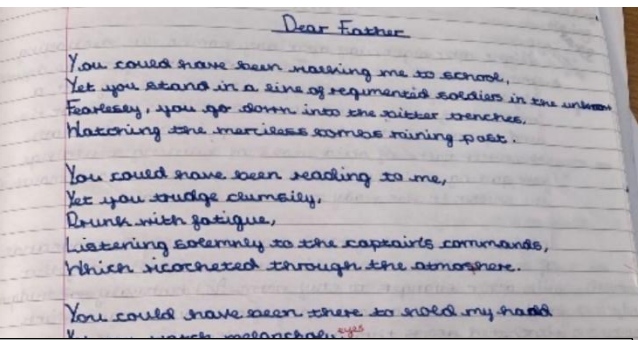 Dear Father
You could have been walking me to school,
Yet you stand in a line of regimented soldiers in the unknown
Fearlessly, you go down into the bitter trenches,
Watching the merciless bombs raining past.
You could have been reading to me,
Yet you trudge clumsily,
Drunk with fatigue,
Listening solemnly to the captain's commands,
Which ricocheted through the atmosphere.
You could have been there to hold my hand
melancholy eyes